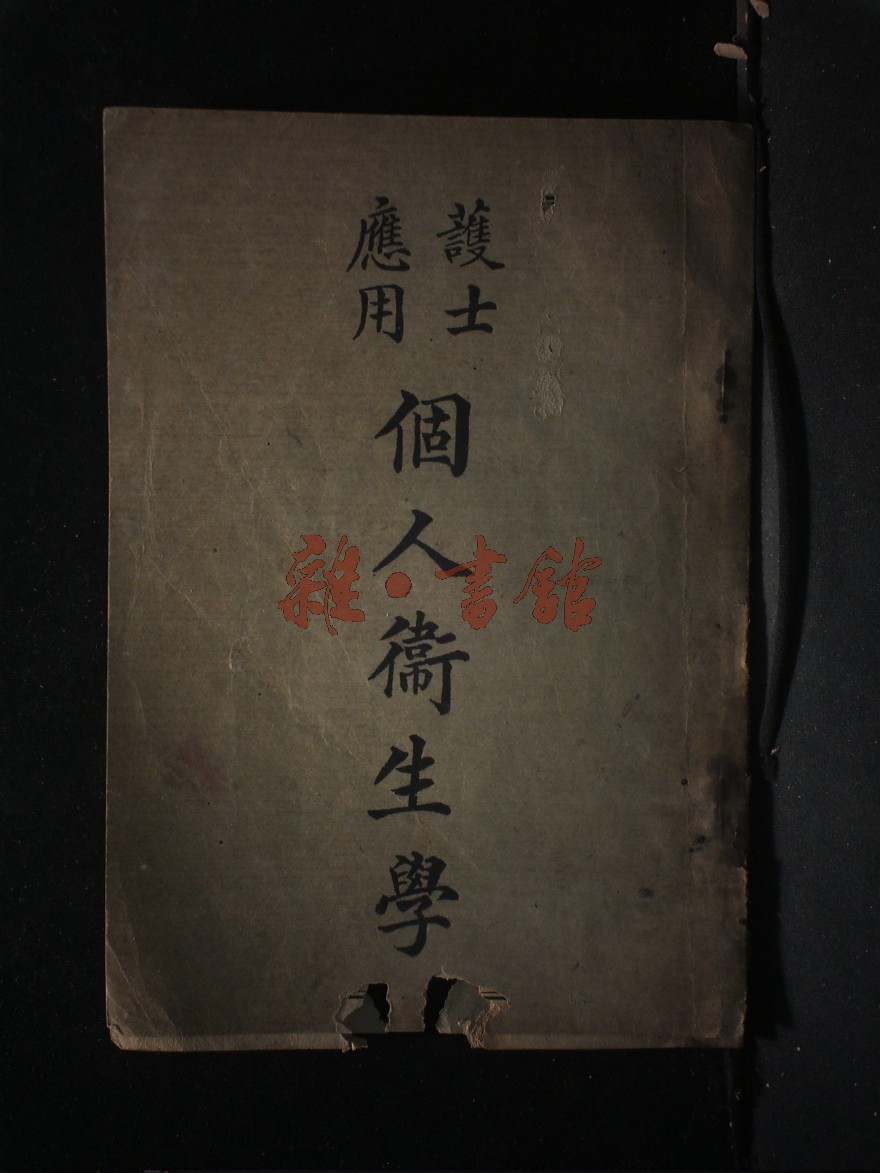 護士
應用
個人衞生學
雜·書館